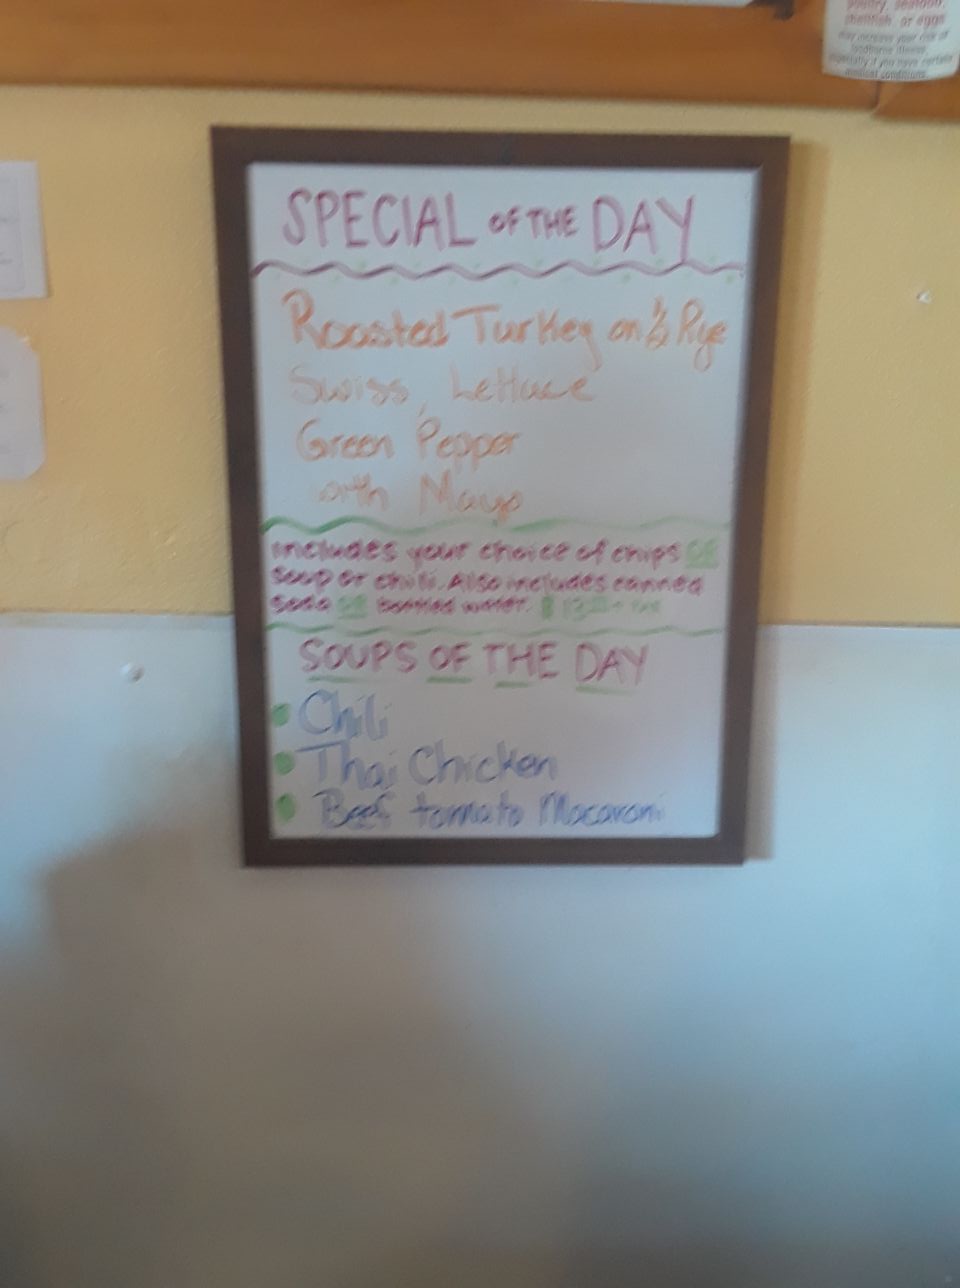 poultry, seafood,
shellfish or eggs
may increase your risk of
foodborne illness,
especially if you have certain
medical conditions.
SPECIAL OF THE DAY
Roasted Turkey on ½ Rye
Swiss, Lettuce
Green Pepper
with Mayo
includes your choice of chips OR
soup or chili. Also includes canned
soda OR bottled water.
SOUPS OF THE DAY
Chili
Thai Chicken
Beef tomato Macaroni